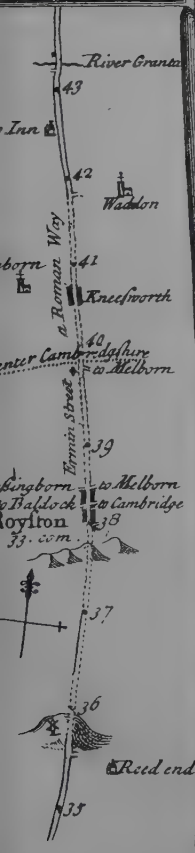 River Granta
43
Inn
42
Waddon
a Roman Way
41
born
Kneesworth
40
enter Cambridgshire
to Melborn
Ermin Street
39
singborn
to Melborn
to Baldock
to Cambridge
Royston
38
33. com.
37
36
Reed end
35